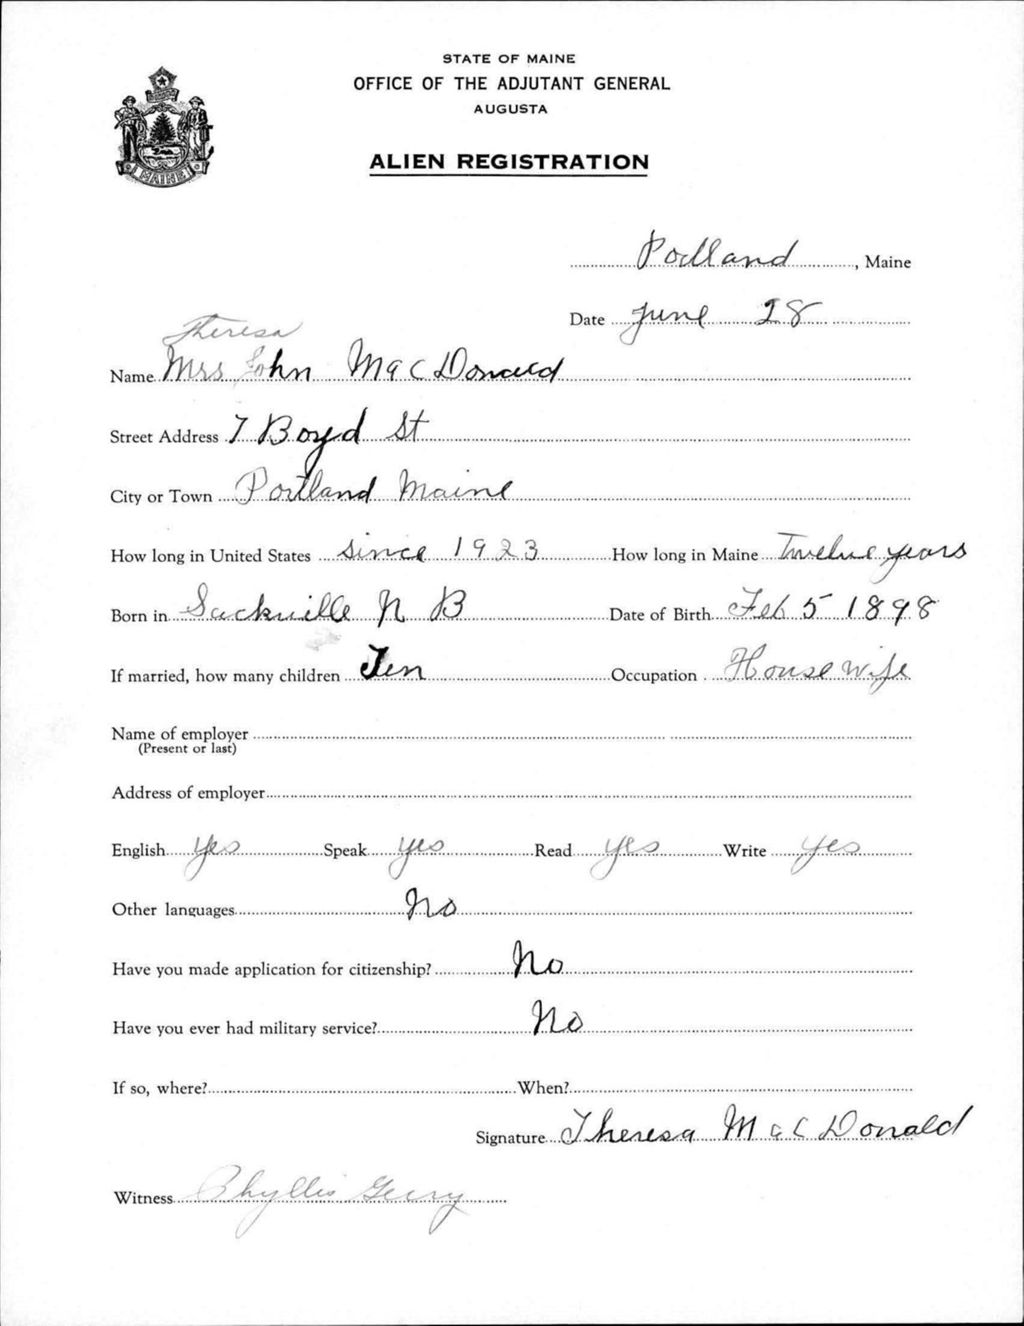 STATE OF MAINE
OFFICE OF THE ADJUTANT GENERAL
AUGUSTA
ALIEN REGISTRATION
MAINE
Portland, Maine
Date June 28
Theresa
Name Mrs John MacDonald
Street Address 7 Boyd St
City or Town Portland Maine
How long in United States since 1923 How long in Maine Twelve years
Born in Sackville N B Date of Birth Feb 5 1898
If married, how many children Ten Occupation House wife
Name of employer
(Present or last)
Address of employer
English yes Speak yes Read yes Write yes
Other languages No
Have you made application for citizenship? No
Have you ever had military service? No
If so, where? When?
Signature Theresa MacDonald
Witness Phyllis Gerry